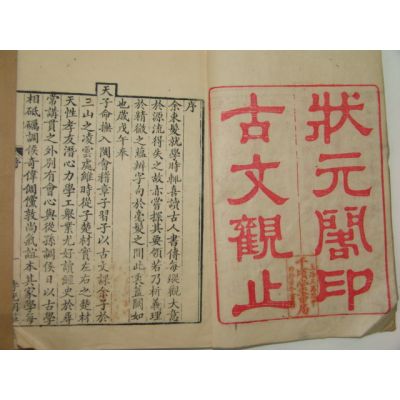 狀元閣印
古文觀止
千頃堂書局
序
余束髮就學時輒喜讀古人書傳每縱觀大意
於源流得失之故亦嘗探其要領若乃析義理
於精微之蘊辨字句於毫髮之間此衷蓋闕如
也歲戊午奉
天子命撫八閩會稽章子習子以古文課余子於
三山之凌雲處維時從子楚材實左右之楚材
天性孝友潛心力學工舉業尤好讀經史於尋
常講貫之外別有會心與從孫調侯日以古學
相砥礪調侯奇偉倜儻敦尚氣誼本其家學每